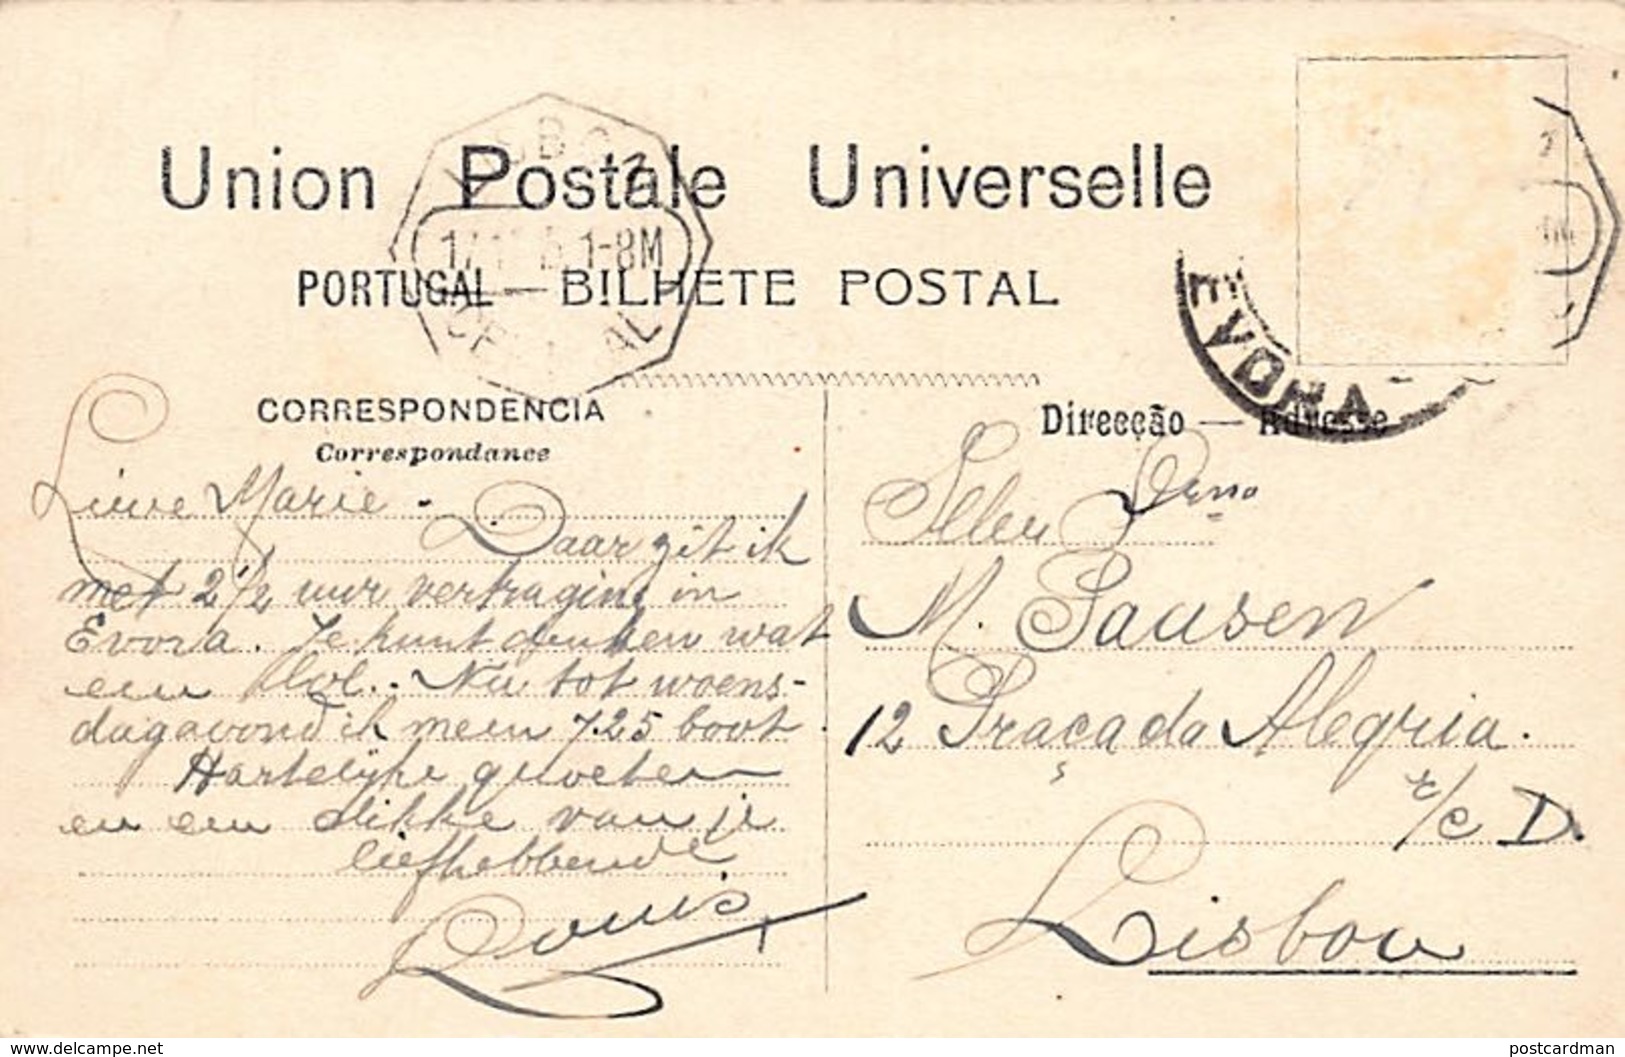 Union Postale Universelle
PORTUGAL — BILHETE POSTAL
1-8M
EVORA
CORRESPONDENCIA
Correspondance
Direcção — Adresse
Lieve Marie.
Daar zit ik
met 2 1/2 uur vertraging in
Evora. Je kunt denken wat
een lol. Nu tot woens-
dagavond ik meen 7.25 boot.
Hartelijke groeten
en een dikke van je
liefhebbende
Louis
Exma
M. Pausen
12 Praça da Alegria.
r/c D.
Lisboa
www.delcampe.net
postcardman